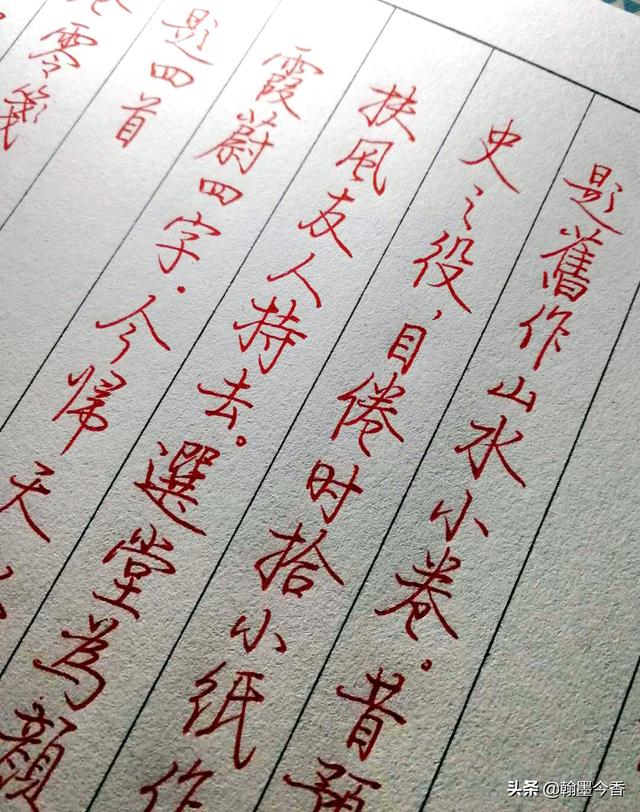 题舊作山水小卷。昔預
史之役，目倦时拾小纸作
扶風友人持去。選堂為顏
霞蔚四字．今帰天
题四首
零箋
头条 @翰墨今香